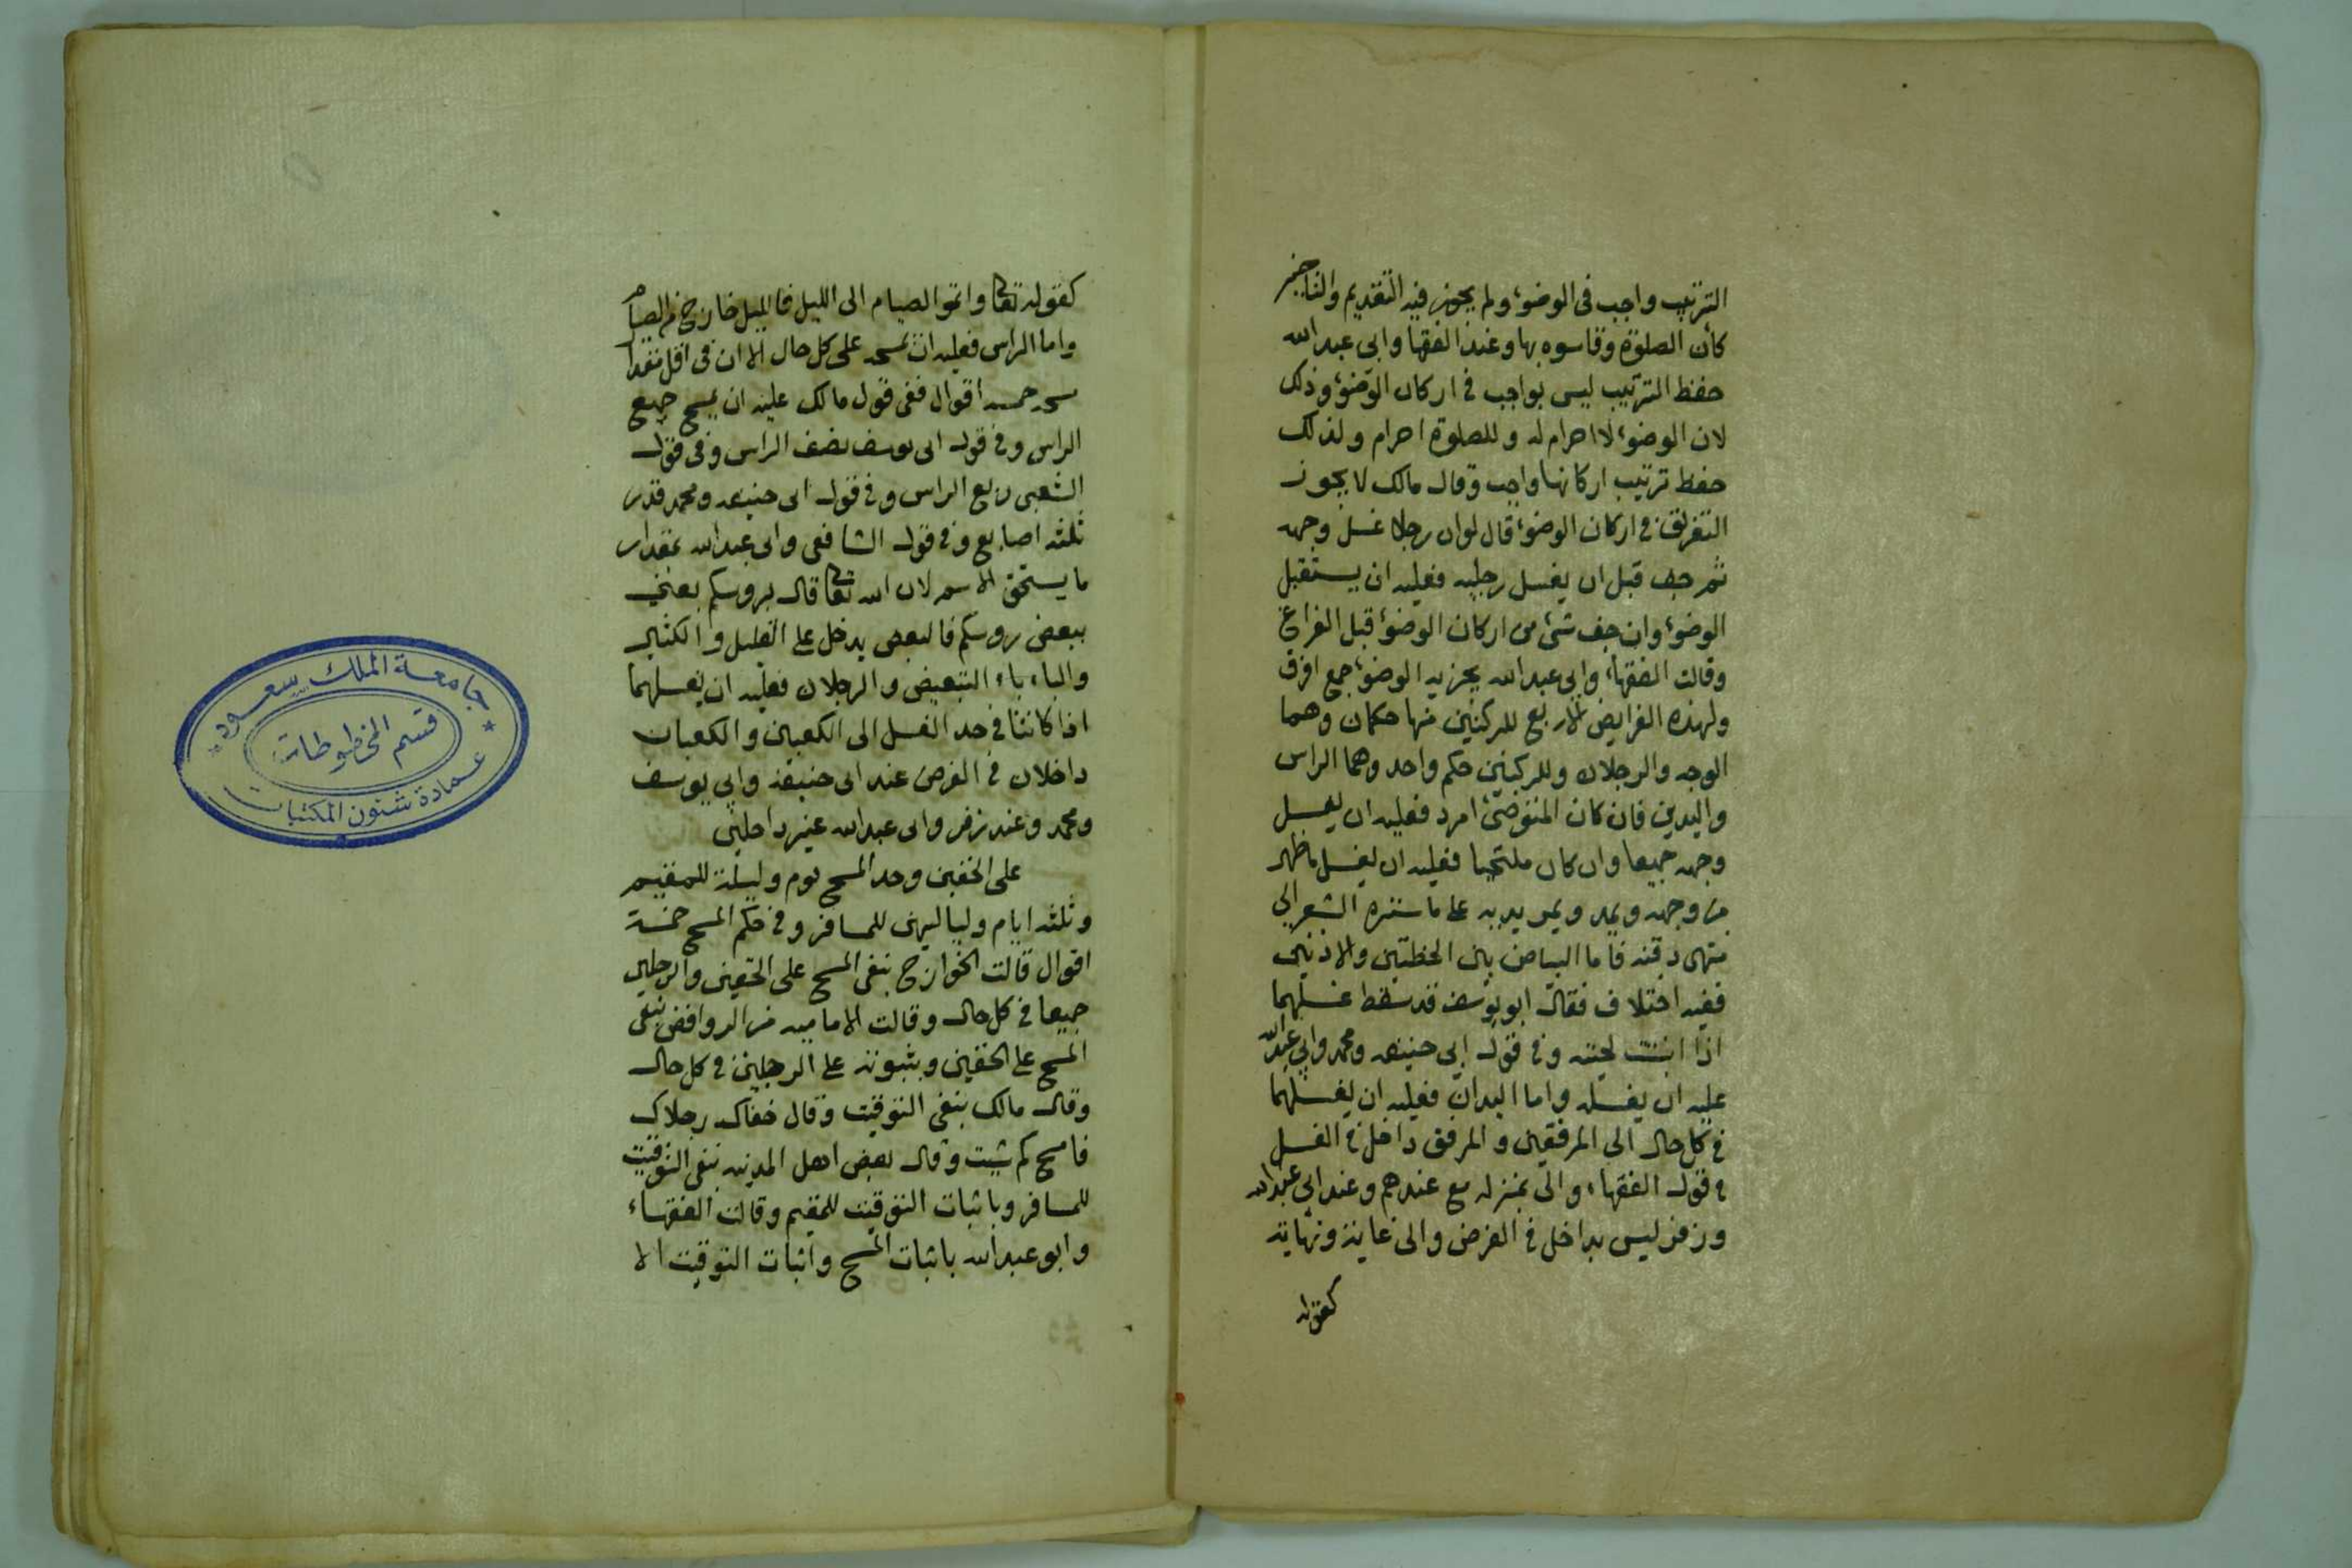 الترتيب واجب في الوضوء ولم يجوز فيه التقديم والتاخير
كأن الصلوة وقاسوه بها وعند الفقها وابي عبد الله
حفظ الترتيب ليس بواجب في اركان الوضوء وذلك
لان الوضوء لا احرام له وللصلوة احرام ولذلك
حفظ ترتيب اركانها واجب وقال مالك لا يجوز
التفريق في اركان الوضوء قال لو ان رجلا غسل وجهه
ثم جف قبل ان يغسل رجليه فعليه ان يستقبل
الوضوء وان جف شئ من اركان الوضوء قبل الفراغ
وقالت الفقهاء وابي عبد الله يجزيه الوضوء جمع او فرق
ولهذه الفرايض الاربع للركنين منها حكمان وهما
الوجه والرجلان وللركنين حكم واحد وهما الراس
واليدين فان كان المتوضئ امرد فعليه ان يغسل
وجهه جميعا وان كان ملتحيا فعليه ان يغسل ما ظهر
من وجهه ويمد ويمر يديه على ما ستره الشعر الى
منتهى ذقنه فاما البياض بين الخطتين والاذنين
ففيه اختلاف فقال ابو يوسف قد سقط غسلهما
اذا انبتت لحيته وفي قول ابي حنيفه ومحمد وابي عبد الله
عليه ان يغسله واما اليدان فعليه ان يغسلهما
في كل حال الى المرفقين والمرفق داخل في الغسل
في قول الفقهاء والى بمنزله مع عندهم وعند ابي عبد الله
وزفر ليس بداخل في الفرض والى غاية ونهاية
كقوله
كقوله تعالى واتموا الصيام الى الليل فالليل خارج من الصيام
واما الراس فعليه ان يمسحه على كل حال الا ان في اقل مقدار
مسحه خمسه اقوال ففي قول مالك عليه ان يمسح جميع
الراس وفي قول ابي يوسف نصف الراس وفي قول
الشعبي ربع الراس وفي قول ابي حنيفه ومحمد قدر
ثلثه اصابع وفي قول الشافعي وابي عبد الله بمقدار
ما يستحق الاسم لان الله تعالى قال بروسكم يعني
ببعض روسكم فالبعض يدخل على القليل والكثير
والباء باء التبعيض والرجلان فعليه ان يغسلهما
اذا كانتا في حد الغسل الى الكعبين والكعبان
داخلان في الفرض عند ابي حنيفة وابي يوسف
ومحمد وعند زفر وابي عبد الله غير داخلين
على الخفين وحد المسح يوم وليلة للمقيم
وثلثه ايام ولياليهن للمسافر وفي حكم المسح خمسة
اقوال قالت الخوارج بنفي المسح على الخفين والرجلين
جميعا في كل حال وقالت الاماميه من الروافض بنفي
المسح على الخفين ويثبتونه على الرجلين في كل حال
وقال مالك بنفي التوقيت وقال خفاك رجلاك
فامسح كم شيت وقال بعض اهل المدينه بنفي التوقيت
للمسافر وباثبات التوقيت للمقيم وقالت الفقهاء
وابو عبد الله باثبات المسح واثبات التوقيت الا
جامعة الملك سعود
قسم المخطوطات
عمادة شئون المكتبات